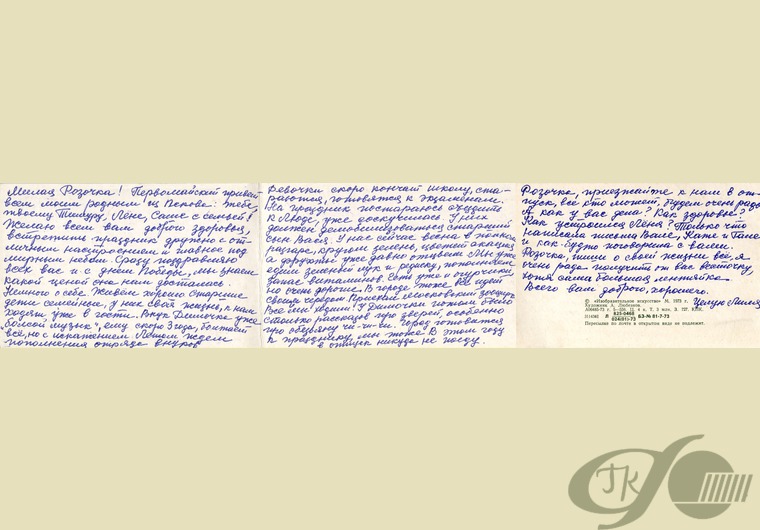 Милая Розочка! Первомайский привет
всем моим родным из Пскова: тебе,
твоему Тимуру, Лене, Саше с семьёй!
Желаю всем вам доброго здоровья,
встретить праздник дружно с от-
личным настроением и главное под
мирным небом. Сразу поздравляю
всех вас и с днём Победы, мы знаем
какой ценой она нам досталась.
Немного о себе. Живём хорошо. Старшие
дети семейные, у них своя жизнь, к нам
ходят уже в гости. Внук Димочка уже
большой мужик", ему скоро 3 года, болтает
всё, но с искажением. Летом ждем
пополнения отряда внуков
Девочки скоро кончают школу, ста-
раются, готовятся к экзаменам.
На праздник постараюсь съездить
к Люде, уже соскучилась. У них
должен демобилизоваться старший
сын Вася. У нас сейчас весна в полном
разгаре, кругом зелень, цветёт акация
а абрикосы уже давно отцвели. Мы уже
едим зеленый лук и редиску, пополняем
запас витаминов. Есть уже и огурчики,
но очень дорогие. В городе тоже всё идёт
своим чередом. Приехал Московский зооцирк
Все мы ходили. У Димочки потом было
столько рассказов про зверей, особенно
про обезьяну чи-чи-чи. Город готовится
к празднику, мы тоже. В этом году
в отпуск никуда не поеду.
Розочка, приезжайте к нам в от-
пуск, все кто может, будем очень рады
А как у вас дела? Как здоровье?
Как устроилась Лена? Только что
написала письма Вале, Кате и Гале
и как будто поговорила с вами.
Розочка, пиши о своей жизни всё, я
очень рада получить от вас весточку,
хотя сама большая лентяйка
Всего вам доброго, хорошего.
Целую Лиля
© «Изобразительное искусство» М. 1973 г.
Художник А. Любезнов
625-0468
024(01)-73
БЗ-№ 81-7-73
Пересылка по почте в открытом виде не подлежит.
ГК